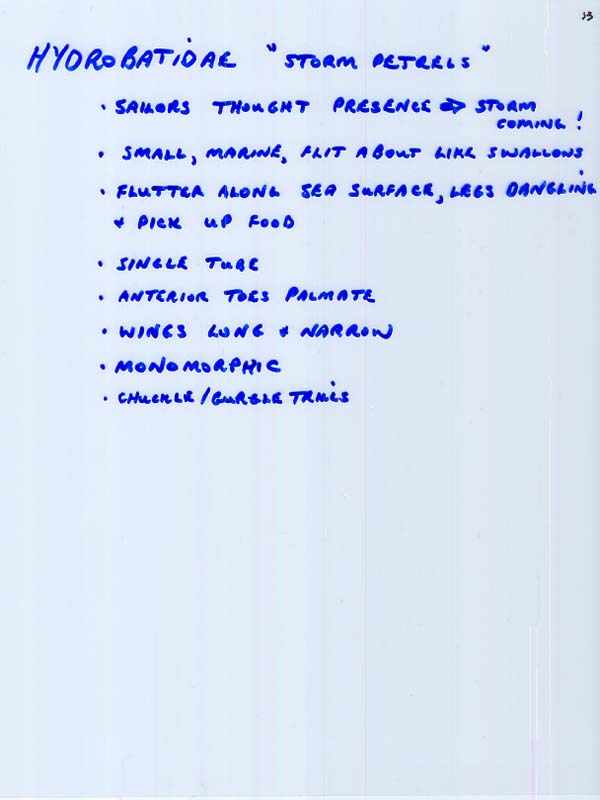 33
HYDROBATIDAE "STORM PETRELS"
• SAILORS THOUGHT PRESENCE ⇒ STORM
COMING!
• SMALL, MARINE, FLIT ABOUT LIKE SWALLOWS
• FLUTTER ALONG SEA SURFACE, LEGS DANGLING
& PICK UP FOOD
• SINGLE TUBE
• ANTERIOR TOES PALMATE
• WINGS LONG & NARROW
• MONOMORPHIC
• CHUCKLE/GURGLE TRILLS